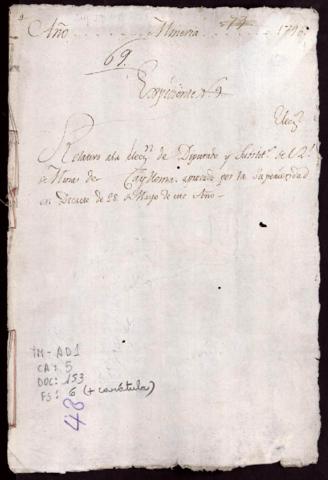 Año Mineria 1790
69.
Expediente 69
Elecz
Relativo ala elecn. de Diputado y Sustito. de l R.l
de Minas de Caylloma. aprovado por la Superioridad
en Decreto de 28 de Mayo de este Año
TM - AD1
CA: 5
DOC: 153
FS: 6 (+ carátula)
48